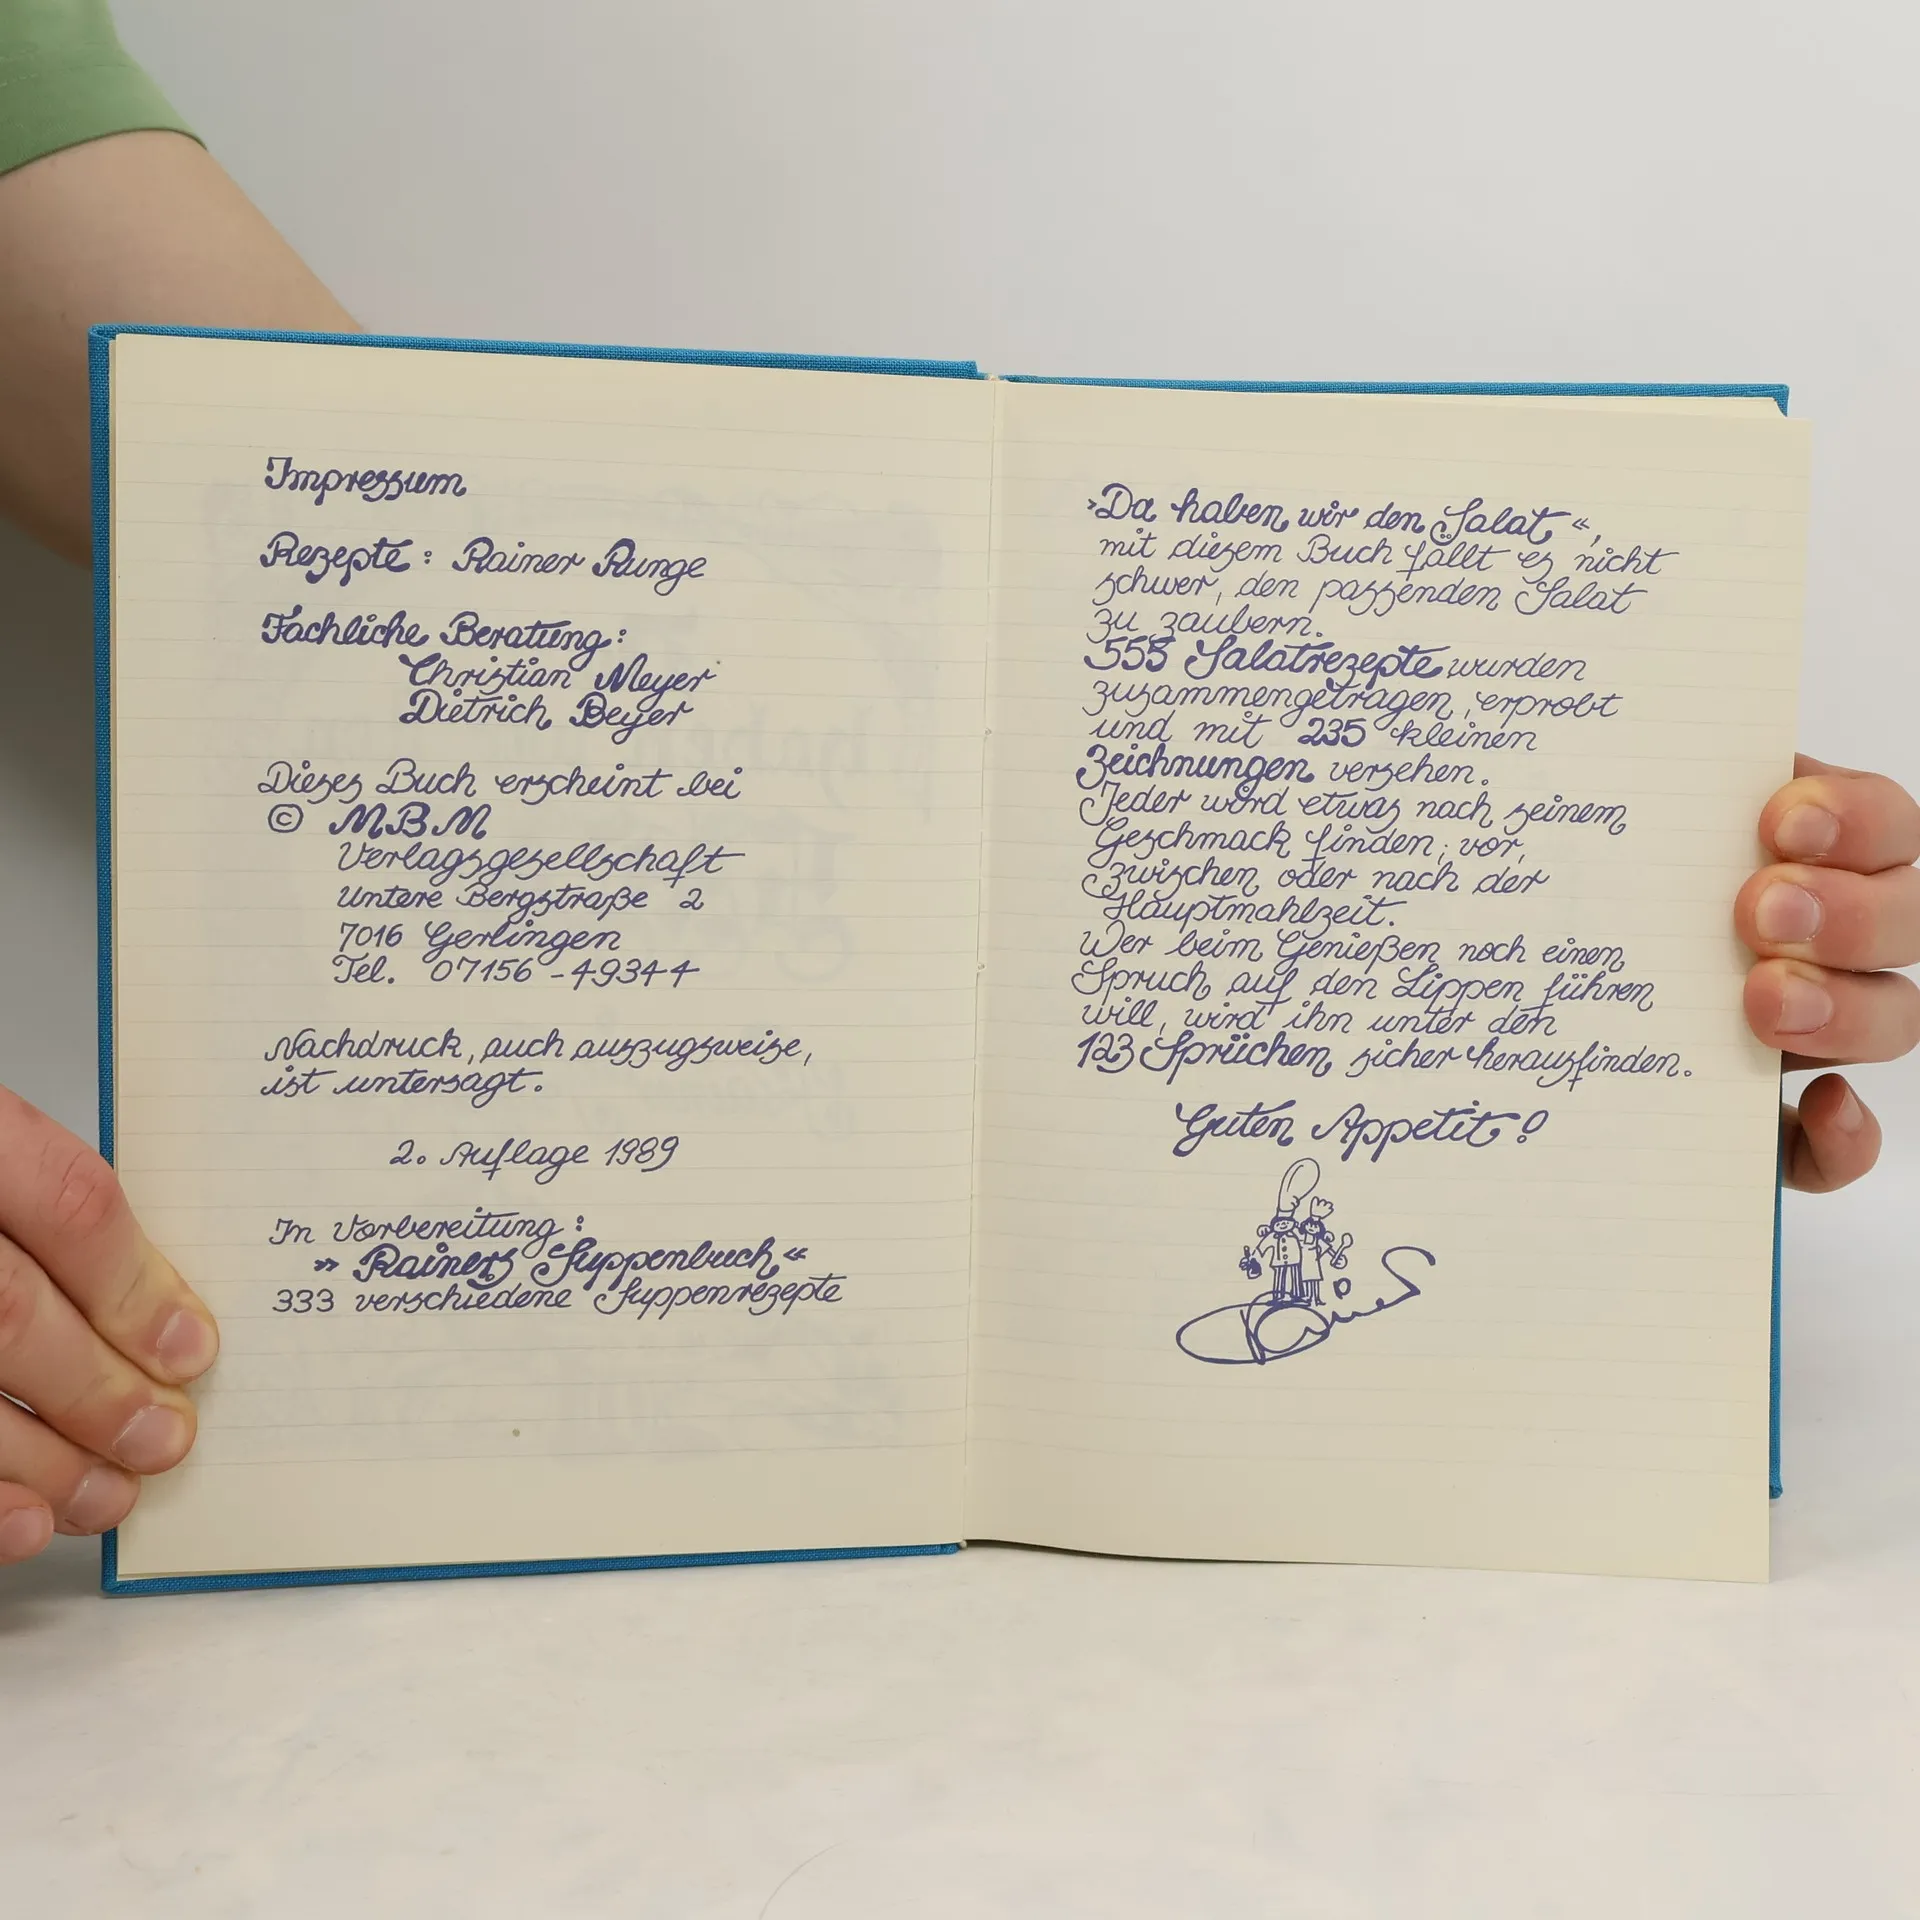 Impressum
Rezepte: Rainer Runge
Fachliche Beratung:
Christian Meyer
Dietrich Beyer
Dieses Buch erscheint bei
© MBM
Verlagsgesellschaft
Untere Bergstraße 2
7016 Gerlingen
Tel. 07156-49344
Nachdruck, auch auszugsweise,
ist untersagt.
2. Auflage 1989
In Vorbereitung:
»Rainers Suppenbuch«
333 verschiedene Suppenrezepte
»Da haben wir den Salat«,
mit diesem Buch fällt es nicht
schwer, den passenden Salat
zu zaubern.
555 Salatrezepte wurden
zusammengetragen, erprobt
und mit 235 kleinen
Zeichnungen versehen.
Jeder wird etwas nach seinem
Geschmack finden; vor,
zwischen oder nach der
Hauptmahlzeit.
Wer beim Genießen noch einen
Spruch auf den Lippen führen
will, wird ihn unter den
123 Sprüchen sicher herausfinden.
Guten Appetit!